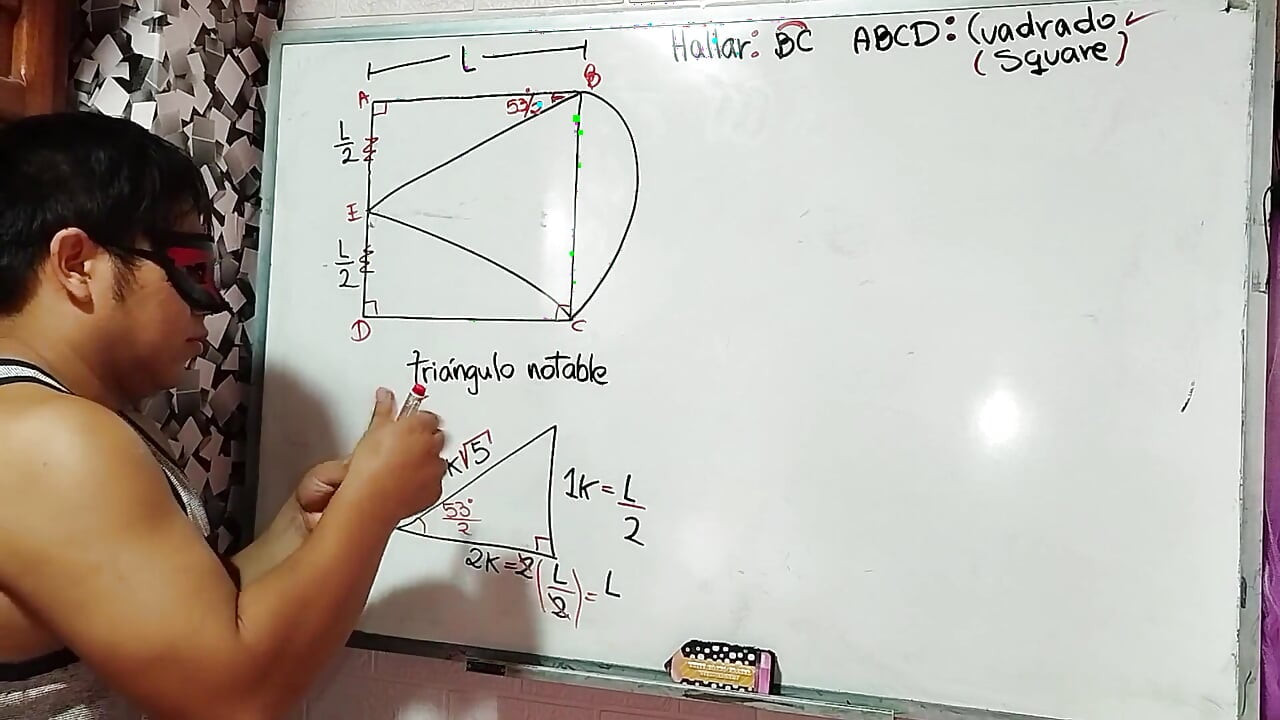 Hallar: BC
ABCD: Cuadrado ✓
(Square)
L
A
B
53°/2
L/2
E
L/2
D
C
triángulo notable
k√5
1k = L/2
53°/2
2k = 2(L/2) = L